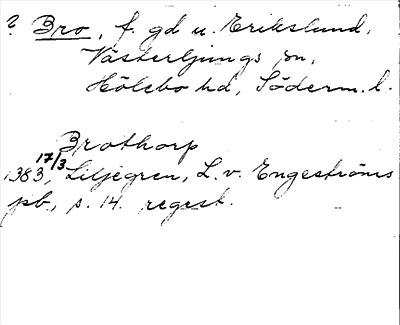 ? Bro, f. gd u. Erikslund,
Västerljungs sn,
Hölebo hd, Söderm. l.
Brothorp
1383 17/3, Liljegren, L. v. Engeströms
pb., s. 14. regest.